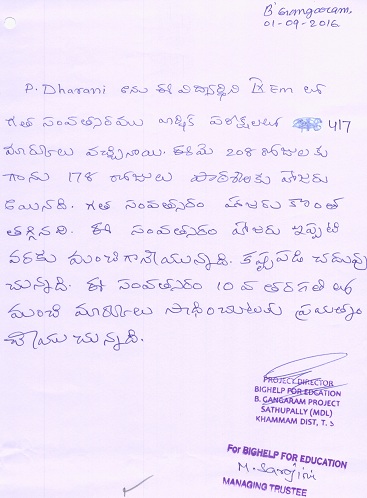 B' Gangaram,
01-09-2016.
P. Dharani అను ఈ విద్యార్థిని IX Em లో
గత సంవత్సరము వార్షిక పరీక్షలలో 417
మార్కులు వచ్చినాయి. ఈమె 208 రోజులకు
గాను 178 రోజులు పాఠశాలకు హాజరు
అయినది. గత సంవత్సరం హాజరు కొంత
తగ్గినది. ఈ సంవత్సరం హాజరు ఇప్పటి
వరకు మంచిగానేయున్నది. కష్టపడి చదువు
చున్నది. ఈ సంవత్సరం 10 వ తరగతి లో
మంచి మార్కులు సాధించుటకు ప్రయత్నం
చేయు చున్నది.
PROJECT DIRECTOR
BIGHELP FOR EDCATION
B. GANGARAM PROJECT
SATHUPALLY (MDL)
KHAMMAM DIST, T. S
For BIGHELP FOR EDUCATION
M. Sarojini
MANAGING TRUSTEE